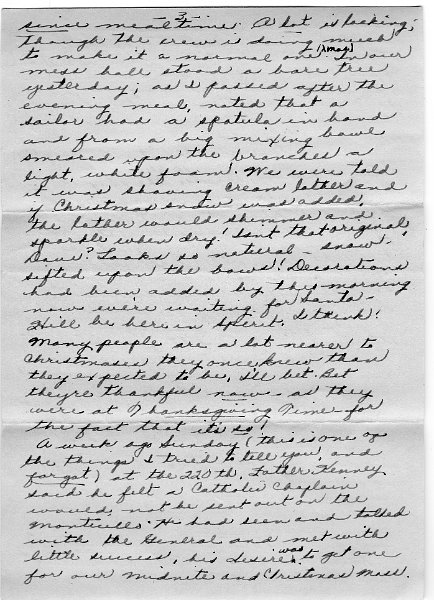 3
since mealtime. A lot is lacking;
though the crew is doing much
to make it a normal one (Xmas). In our
mess hall stood a bare tree
yesterday; as I passed after the
evening meal, noted that a
sailor had a spatula in hand
and from a big mixing bowl
smeared upon the branches a
light, white foam. We were told
it was shaving cream lather and
if Christmas snow was added,
the lather would shimmer and
sparkle when dry! Isn't that original,
Dave? Looks so natural - snow -
sifted upon the bows! Decorations
had been added by this morning
now we're waiting for Santa -
He'll be here in spirit. I think!
Many people are a lot nearer to
Christmases they once knew than
they expected to be, I'll bet. But
they're thankful now - as they
were at Thanksgiving Time - for
the fact that it's so!
A week ago Sunday (this is one of
the things I tried to tell you, and
forgot) at the 220th, Father Kenney
said he felt a Catholic Chaplain
would not be sent out on the
Monticello. He had seen and talked
with the General and met with
little success, his desire was to get one
for our midnite and Christmas Mass.